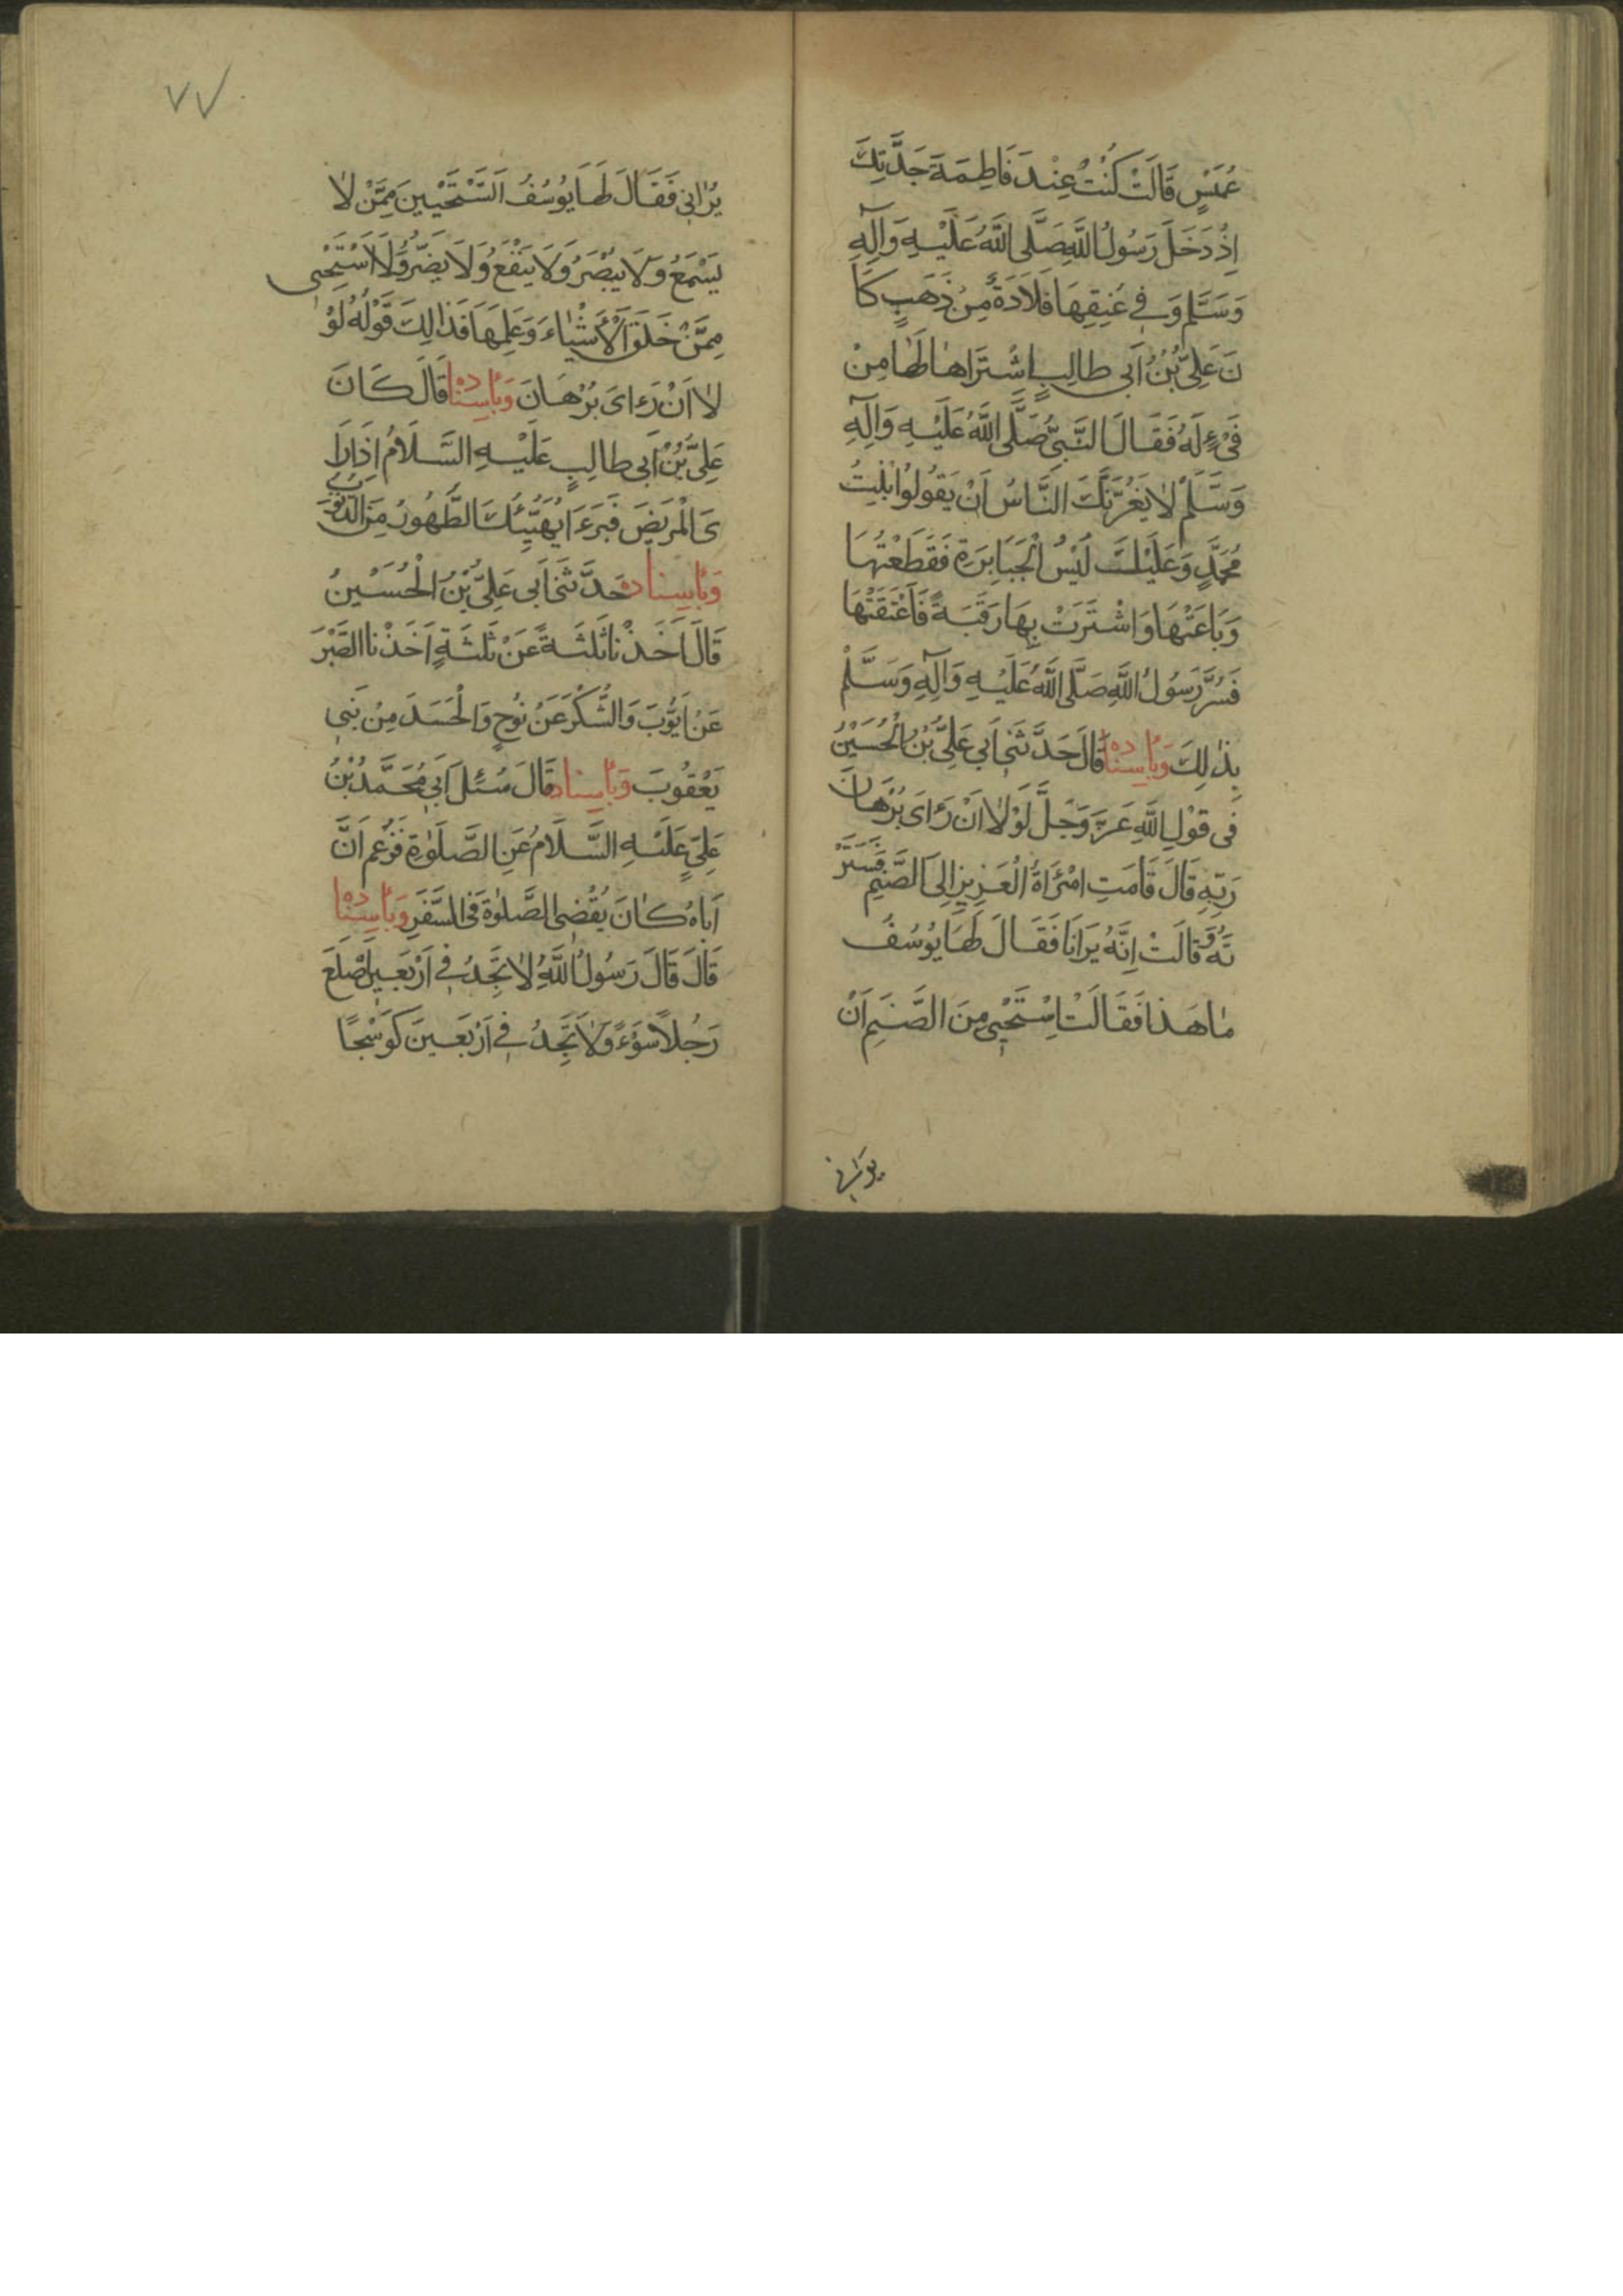 عُمَيْسٍ قَالَتْ كُنْتُ عِنْدَ فَاطِمَةَ جَدَّتِكَ
اِذْ دَخَلَ رَسُولُ اللَّهِ صَلَّى اللَّهُ عَلَيْهِ وَآلِهِ
وَسَلَّمَ وَفِي عُنِقِهَا قَلَادَةٌ مِنْ ذَهَبٍ كَا
نَ عَلِىُّ بْنُ اَبِى طالِبٍ اِشْتَرَاهَا لَهَا مِنْ
فَىْءٍ لَهُ فَقَالَ النَّبِىُّ صَلَّى اللَّهُ عَلَيْهِ وَآلِهِ
وَسَلَّمَ لَا يَغُرَّنَّكَ النَّاسُ اَنْ يَقُولُوا بْنِتُ
مُحَمَّدٍ وَعَلَيْكَ لُبْسُ الْجَبَابِرَةِ فَقَطَعْتُهَا
وَبَاعَتْهَا وَاشْتَرَتْ بِهَا رَقَبَةً فَاَعْتَقَتْهَا
فَسُرَّ رَسُولُ اللَّهِ صَلَّى اللَّهُ عَلَيْهِ وَآلِهِ وَسَلَّمْ
بِذٰلِكَ وَبِأسِنادِهِ قَالَ حَدَّثَنِى اَبِي عَلِىُّ بْنُ الْحُسَيْنُ
فِى قَوْلِ اللَّهِ عَزَّ وَجَلَّ لَوْلَا اَنْ رَءاى بُرْهَانَ
رَبِّهِ قَالَ قَامَتِ امْرَاَةُ الْعَزِيزِ اِلَى الصَّنَمِ فَسَتَرَ
تْهُ وَقَالَتْ اِنَّهُ يَرَانَا فَقَالَ لَهَا يُوسُفُ
مَا هَذَا فَقَالَتْ اِسْتَحْيِى مِنَ الصَّنَمِ اَنْ
يَرانى
٧٧
يَرٰانِى فَقَالَ لَهَا يُوسُفُ اَتَسْتَحْيِينَ مِمَّنْ لَا
يَسْمَعُ وَلَا يُبْصَرُ وَلَا يَنْفَعُ وَلَا يَضُرُّ وَلَا اَسْتَحْيِى
مِمَّنْ خَلَقَ الْأَشْيَاءَ وَعَلِمَهَا فَذَالِكَ قَوْلُهُ لَوْ
لَا اَنْ رَءاى بُرْهَانَ وَبِأسِنادِهِ قَالَ كَانَ
عَلِىُّ بْنُ اَبِى طَالِبٍ عَلَيْهِ السَّلَامُ اِذَا رَا
ىَ الْمَرِيضَ قَدْ بَرَءَ يُهَنِّيئُكَ الطَّهُورُ مِنَ الذُّنُوبِ
وَبِأسِنادِهِ حَدَّثَنِى اَبِى عَلِىُّ بْنُ الْحُسَيْنُ
قَالَ اَخَذْنَا ثَلٰثَةً عَنْ ثَلٰثَةٍ اَخَذْنَا الصَّبْرَ
عَنْ اَيُّوبَ وَالشُّكْرَ عَنْ نُوحٍ وَالْحَسَدَ مِنْ بَنِى
يَعْقُوبَ وَبِأسِنادِهِ قَالَ سُئِلَ اَبِى مُحَمَّدُ بْنُ
عَلِىٍّ عَلَيْهِ السَّلَامُ عَنِ الصَّلَوٰةِ فَزَعَمَ اَنَّ
اَبَاهُ كَانَ يُقْضِى الصَّلٰوةَ فِى السَّفَرِ وَبِأسِنادِهِ
قَالَ قَالَ رَسُولُ اللَّهُِ لَا تَجِدُ فِي اَرْبَعِينَ اَصْلَعَ
رَجُلًا سَوْءً وَلَا تَجِدُ فِي اَرْبَعِينَ كَوْسَجًا